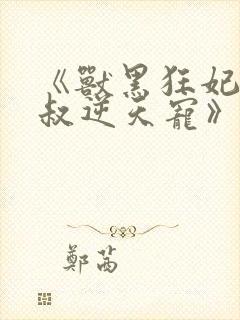 《獸黑狂妃
叔逆天寵》
鄭茜